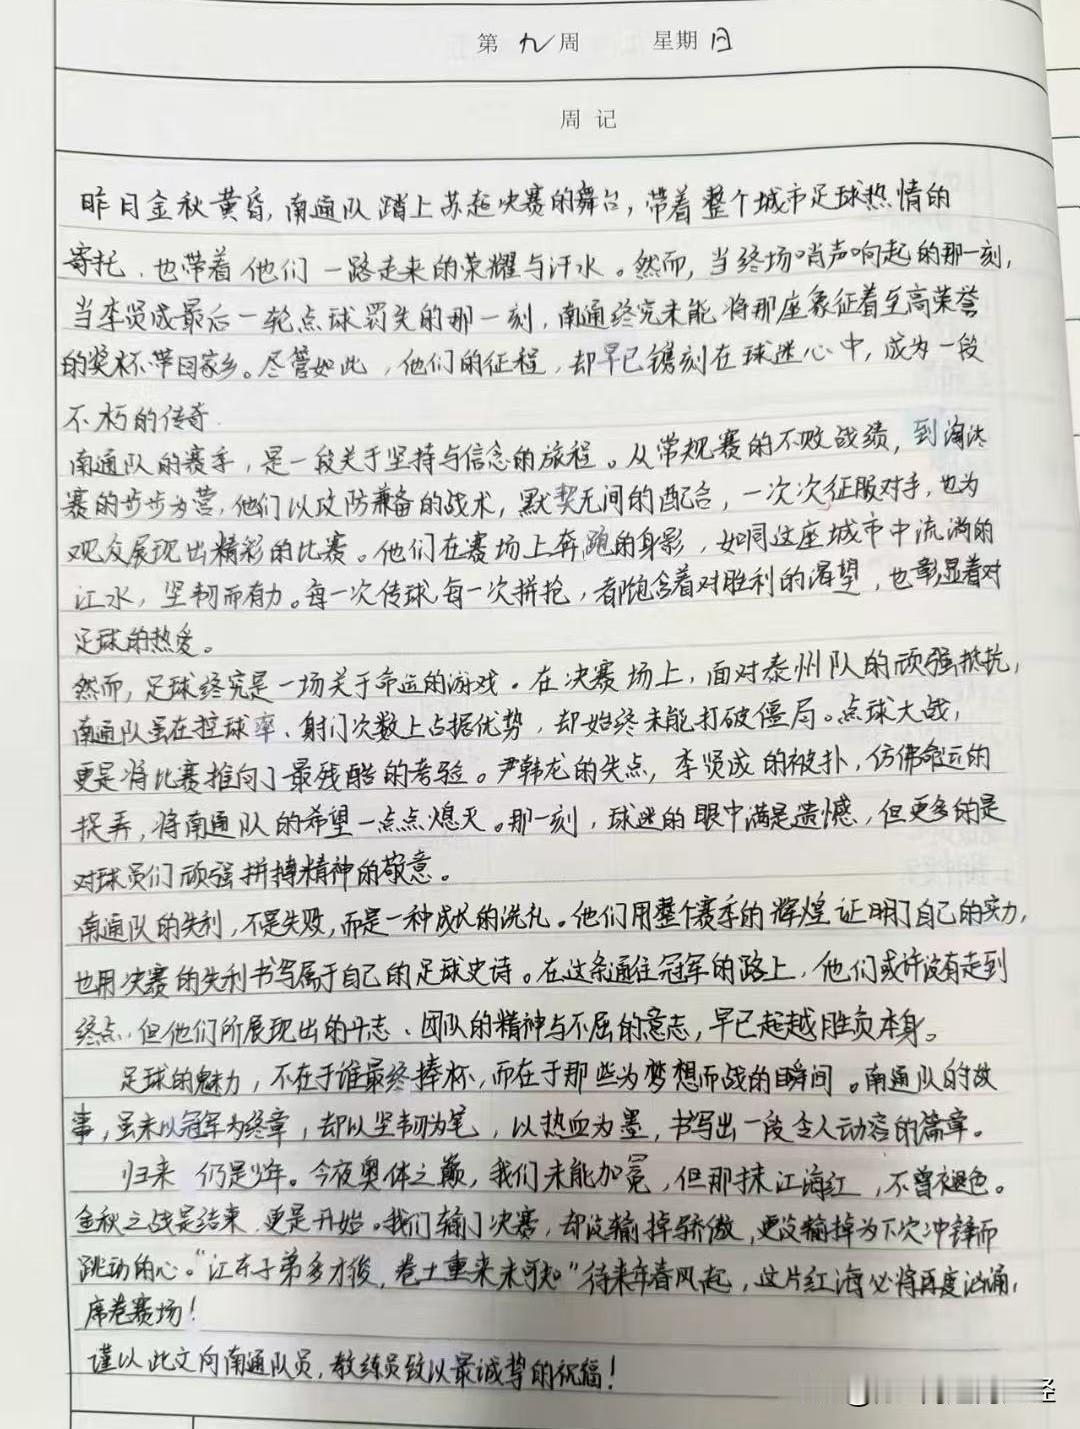 第 九 周 星期 日
周 记
昨日金秋黄昏，南通队踏上苏超决赛的舞台，带着整个城市足球热情的
寄托、也带着他们一路走来的荣耀与汗水。然而，当终场哨声响起的那一刻，
当李贤成最后一轮点球罚失的那一刻，南通终究未能将那座象征着至高荣誉
的奖杯带回家乡。尽管如此，他们的征程，却早已镌刻在球迷心中，成为一段
不朽的传奇.
南通队的赛季，是一段关于坚持与信念的旅程。从常规赛的不败战绩，到淘汰
赛的步步为营，他们以攻防兼备的战术，默契无间的配合，一次次征服对手，也为
观众展现出精彩的比赛。他们在赛场上奔跑的身影，如同这座城市中流淌的
江水，坚韧而有力。每一次传球，每一次拼抢，都饱含着对胜利的渴望，也彰显着对
足球的热爱。
然而，足球终究是一场关于命运的游戏。在决赛场上，面对泰州队的顽强抵抗，
南通队虽在控球率、射门次数上占据优势，却始终未能打破僵局。点球大战，
更是将比赛推向了最残酷的考验。尹韩龙的失点，李贤成的被扑，仿佛命运的
捉弄，将南通队的希望一点点熄灭。那一刻，球迷的眼中满是遗憾，但更多的是
对球员们顽强拼搏精神的敬意。
南通队的失利，不是失败，而是一种成长的洗礼。他们用整个赛季的辉煌证明了自己的实力，
也用决赛的失利书写属于自己的足球史诗。在这条通往冠军的路上，他们或许没有走到
终点，但他们所展现出的斗志、团队的精神与不屈的意志，早已超越胜负本身。
足球的魅力，不在于谁最终捧杯，而在于那些为梦想而战的瞬间。南通队的故
事，虽未以冠军为终章，却以坚韧为笔，以热血为墨，书写出一段令人动容的篇章。
归来 仍是少年。今夜奥体之巅，我们未能加冕，但那抹江海红，不曾褪色。
金秋之战是结束 更是开始。我们输了决赛，却没输掉骄傲，更没输掉为下次冲锋而
跳动的心。“江东子弟多才俊，卷土重来未可知”待来年春风起，这片红海必将再度汹涌，
席卷赛场！
谨以此文向南通队员，教练员致以最诚挚的祝福！